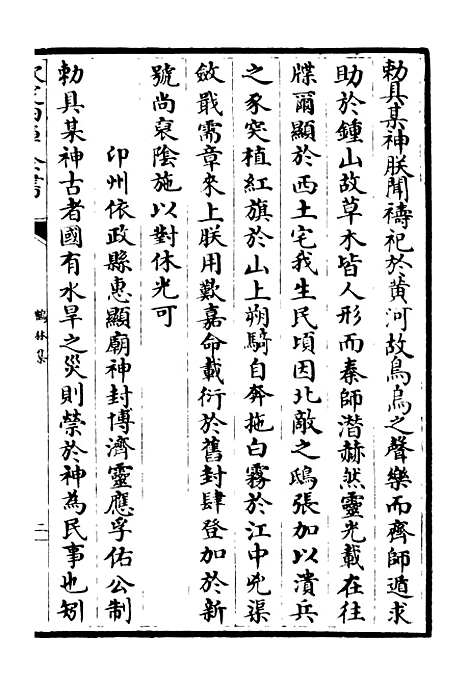 勅具某神朕聞禱祀於黄河故鳥烏之聲樂而齊師遁求
助於鍾山故草木皆人形而秦師潛赫然靈光載在往
牒爾顯於西土宅我生民頃因北敵之鴟張加以潰兵
之豕突植紅旗於山上朔騎自奔拖白霧於江中兇渠
斂戢需章來上朕用歎嘉命載衍於舊封肆登加於新
號尚裒陰施以對休光可
卭州依政縣惠顯廟神封博濟靈應孚佑公制
勅具某神古者國有水旱之災則禜於神為民事也矧
欽定四庫全書
鶴林集
二